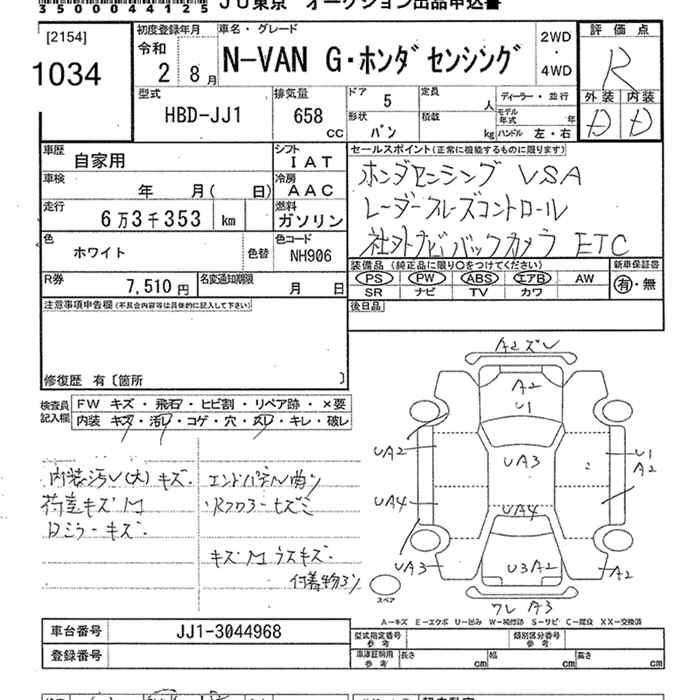 35000044125 JU東京 オークション出品申込書
[2154]
1034
初度登録年月
令和
2年 8月
車名・グレード
N-VAN G・ホンダセンシング
2WD
・
4WD
評価点
R
外装 内装
D D
型式
HBD-JJ1
排気量
658
CC
ドア 5
定員 人
ディーラー・並行
形状
バン
積載 kg
モデル年式 年
ハンドル 左・右
車歴
自家用
シフト
IAT
セールスポイント(正常に機能するものに限ります)
ホンダセンシング VSA
レーダークルーズコントロール
社外ナビ バックカメラ ETC
車検
年 月( 日)
冷房
AAC
走行
6万3千353 km
燃料
ガソリン
色
ホワイト
色替
色コード
NH906
装備品(純正品に限り○をつけてください)
PS PW ABS エアB AW
SR ナビ TV カワ
新車保証書
有・無
R券
7,510円
名変通知期限
月 日
後日品
注意事項申告欄(不具合内容等は具体的に記入して下さい)
修復歴 有〔箇所 〕
検査員記入欄
FW キズ・飛石・ヒビ割・リペア跡・×要
内装 キズ・汚レ・コゲ・穴・スレ・キレ・破レ
内装汚レ(大) キズ
荷室キズM
Dミラーキズ
エンドパネル曲り
Rフロアーヒズミ
キズM ウスキズ
付着物あり
A2ズレ
A2
U1
UA2
UA3
U1
A2
UA4
UA4
UA3
U3A2
A2
ワレ A3
スペア
A-キズ E-エクボ U-凹み W-補修跡 S-サビ C-腐食 XX-交換済
車台番号
JJ1-3044968
登録番号
型式指定番号
参考
類別区分番号
参考
車庫証明用
参考
長さ cm
幅 cm
高さ cm